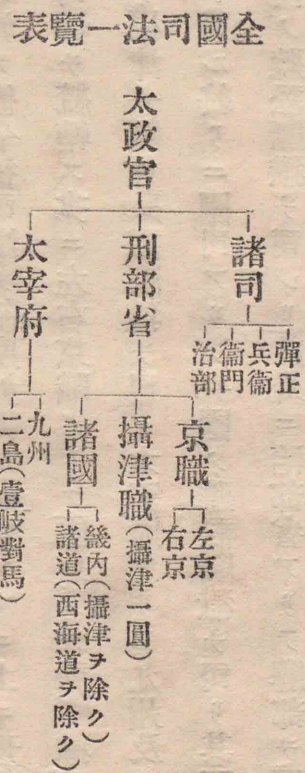 全國司法一覽表
太政官
諸司
彈正
兵衞
衞門
治部
刑部省
京職
左京
右京
攝津職(攝津一圓)
諸國
畿内(攝津ヲ除ク)
諸道(西海道ヲ除ク)
太宰府
九州
二島(壹岐對馬)